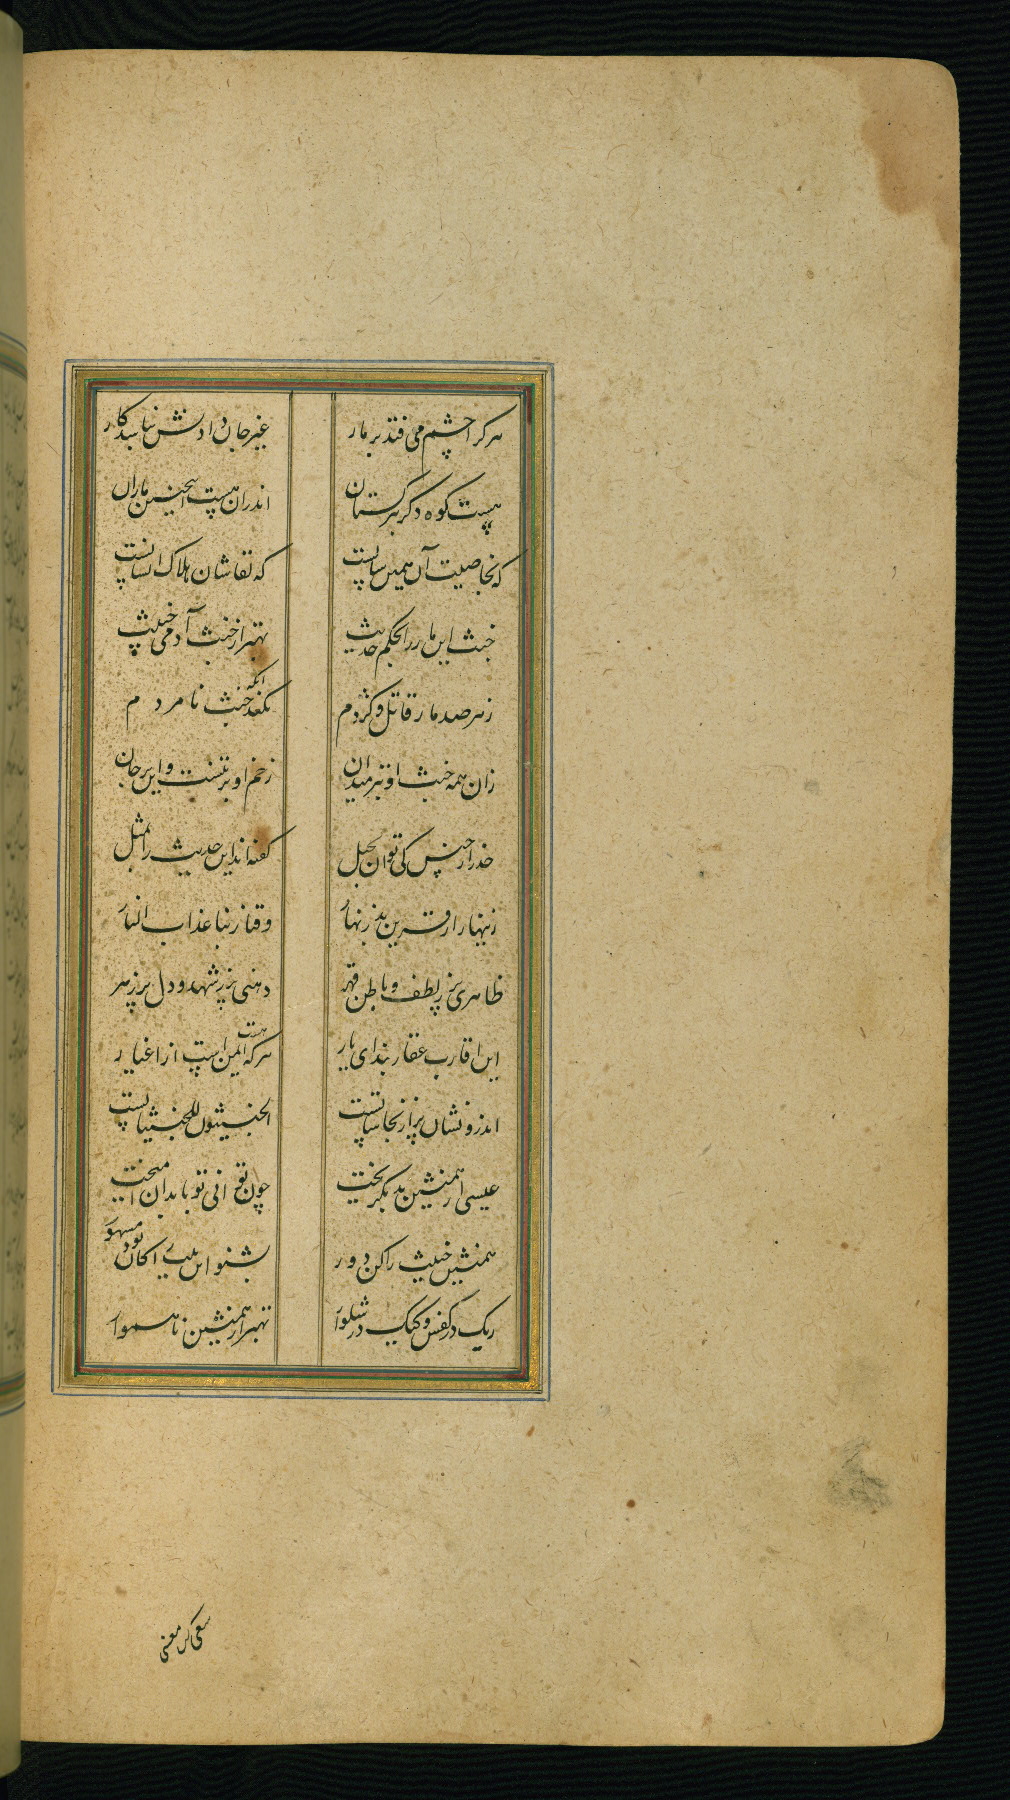 هر کرا چشم می فتد بر مار غیر جان دادنش نباشد کار
هست کوه دگر بترکستان اندران هست اینچنین ماران
که بخاصیت آن همین سانست که نقاشان هلاک انسانست
خبث این مار را بحکم حدیث بهتر از خبث آدمی خبیث
زهر صد مار قاتل و کژدم نکند آنکه خبث نامردم
زان همه خبث او بتر میدان زخم او بر تنست و این بر جان
حذر از جنس کی توان بحیل گفته اند این حدیث را بمثل
زینهار از قرین بد زنهار وقنا ربنا عذاب النار
ظاهری پر ز لطف و باطن قهر دهنی پر ز شهد و دل پر زهر
این اقارب عقاربند ای یار هر که هست ایمن است از اغیار
اندرونشان پر از نجاساتست الخبیثون للخبیثاتست
عیسی از همنشین بد بگریخت چون توانی تو با بدان آمیخت
همنشین خبیث را کن دور بشنو این کان بود مشهور
ریگ در کفش و کیک در شلوار بهتر از همنشین ناهموار
سعی کن معنی